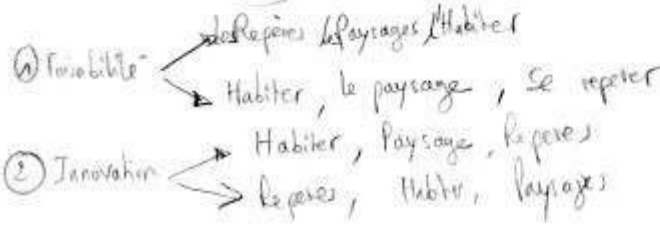 ① Faisabilité les Repères les Paysages l'Habiter
Habiter, le paysage, se reperer
② Innovation Habiter, Paysage, Reperes
Reperes, Habiter, Paysages